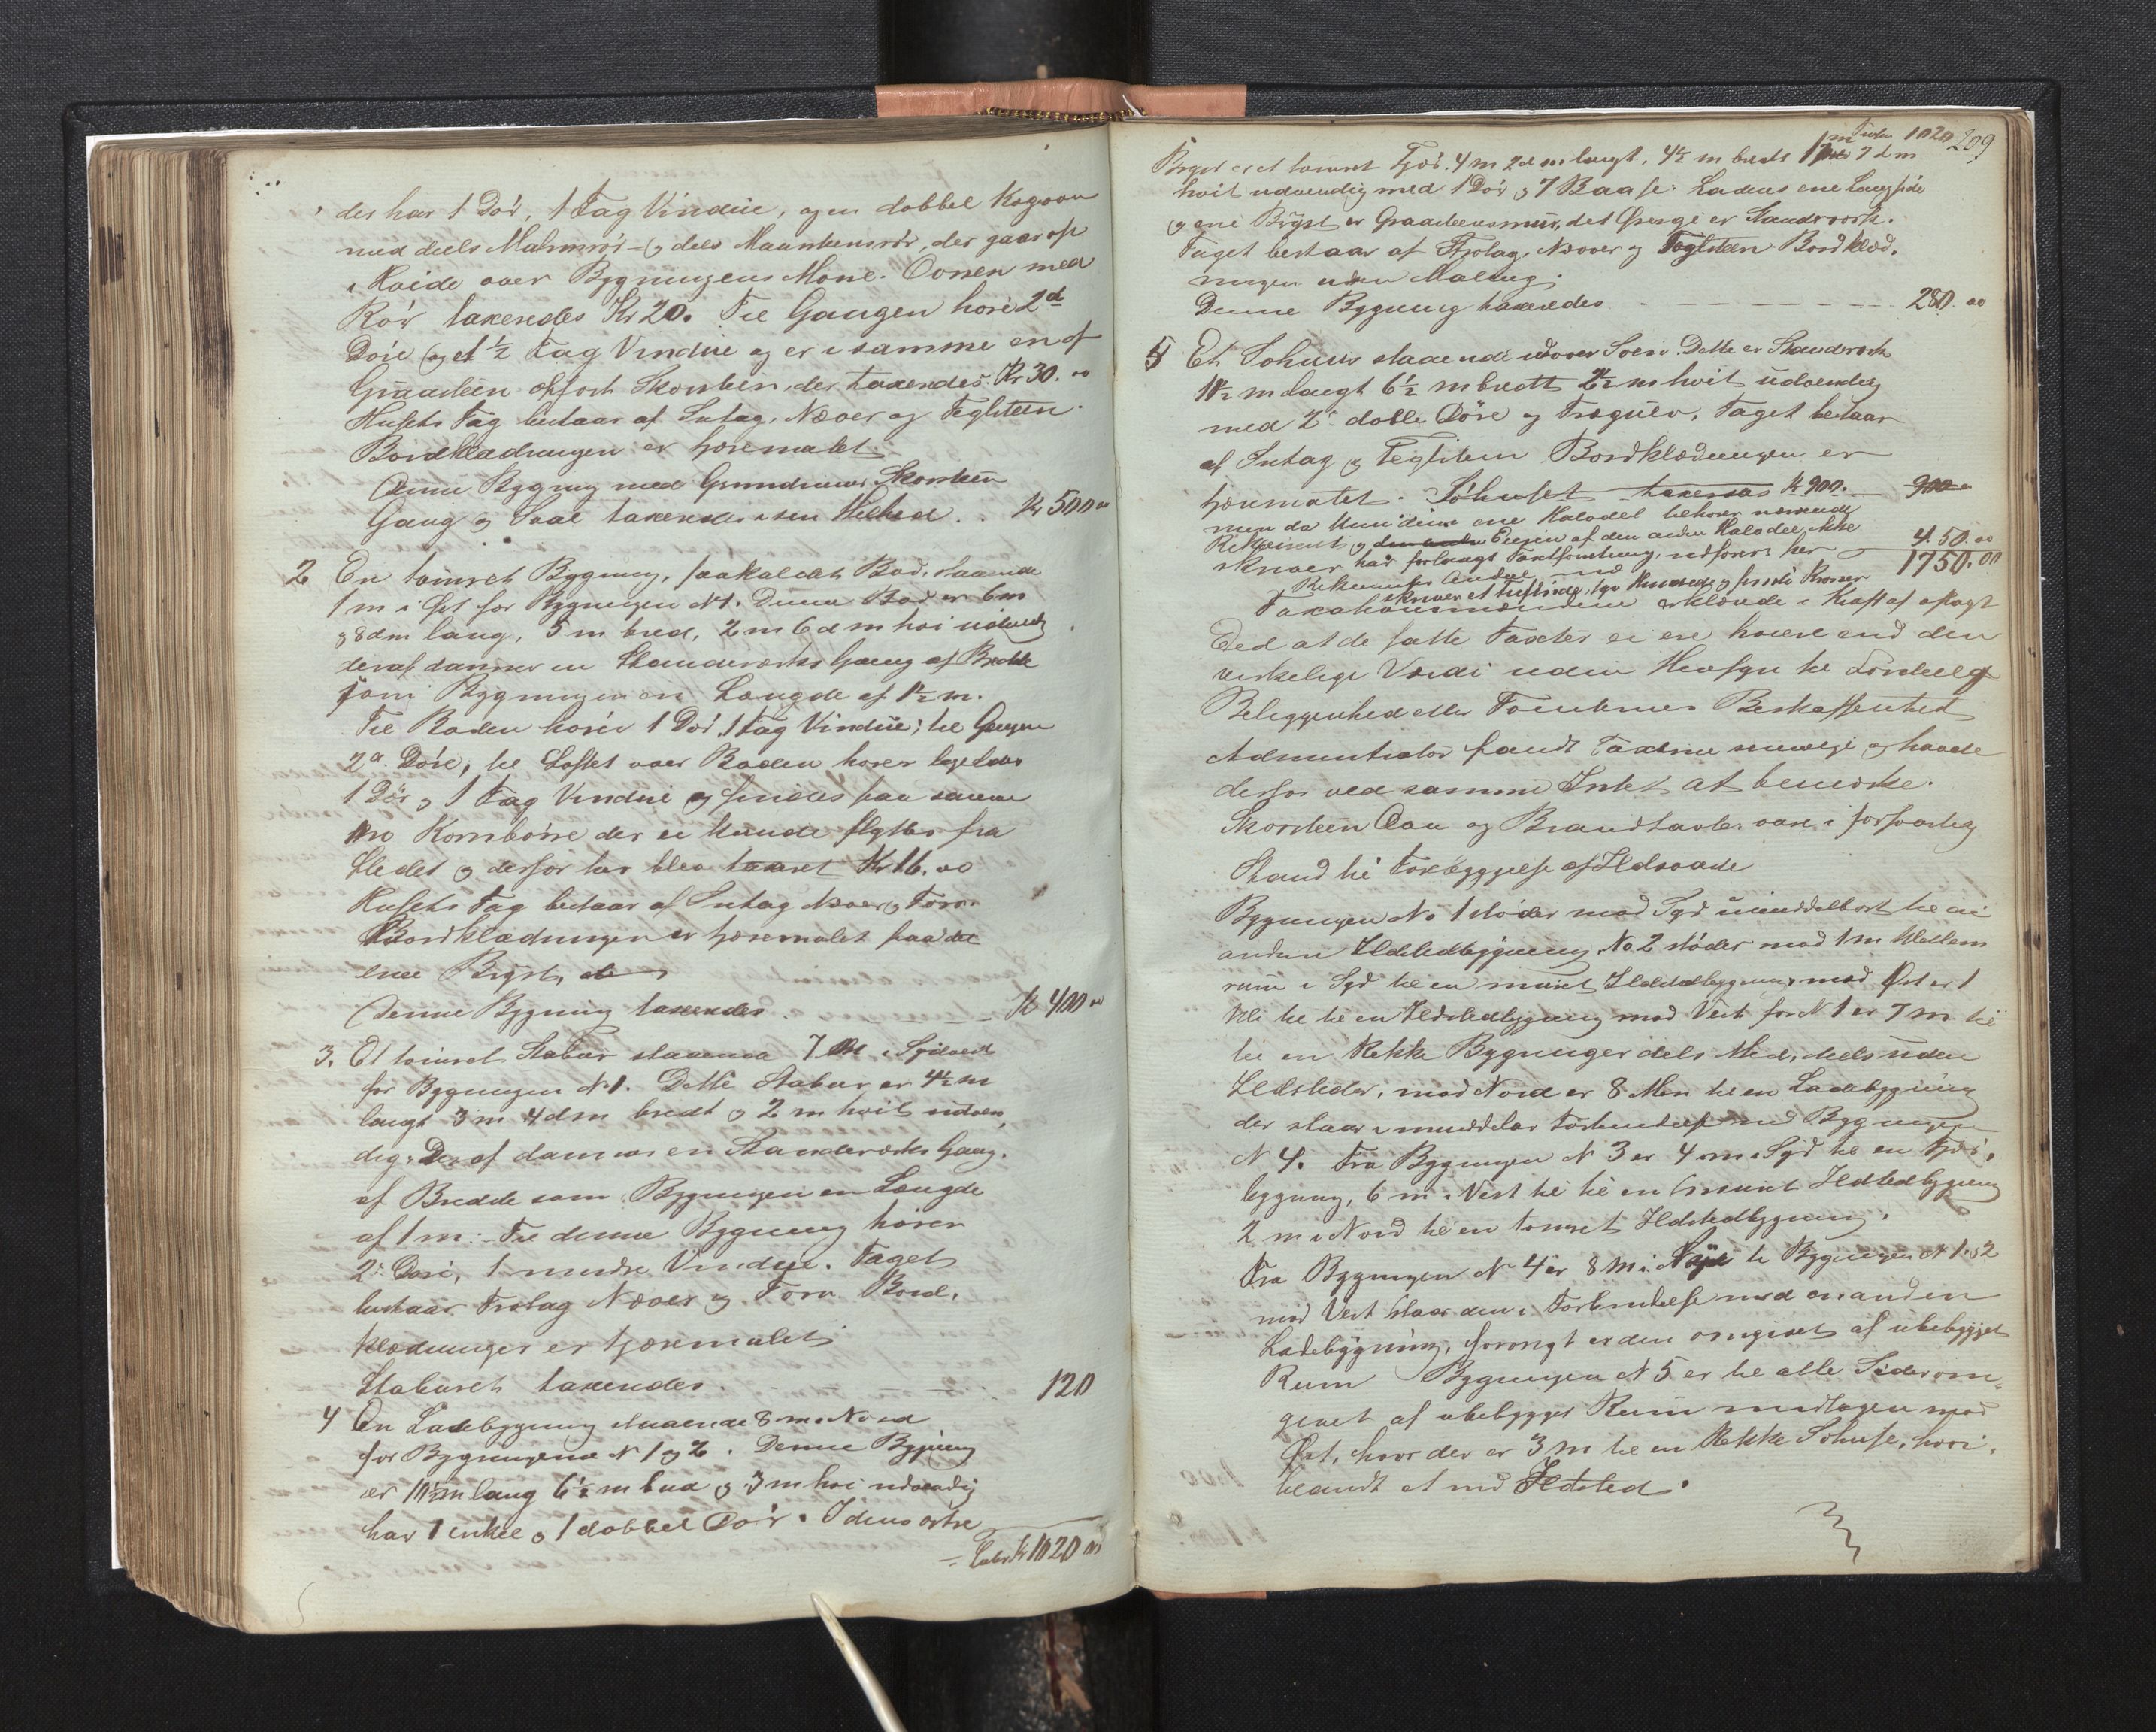 der har 1 Dør, 1 Fag Vindue, og en dobbel Kogoon
med deels Malmrør og deels Muurstensrør, der gaar op
i Høide over Bygningens Møne. Ovnen med
Rør taxeredes Kr 20. Til Gangen hører 2de
Døre og et ½ Fag Vindue og er i samme en af
Graasteen opført Skorsten, der taxeredes Kr 30.00
Husets Tag bestaar af Sutag, Næver og Teglsteen.
Bordklædningen er tjæremalet.
Denne Bygning med Grundmuur, Skorsteen
Gang og Sval taxeredes i sin Helhed . . Kr 500 00
2 En tømret Bygning, saakaldet Bod, staaende
1 m i Øst for Bygningen N 1. Denne Bod er 6 m
og 8 dm lang, 5 m bred, 2 m 6 dm høi udvendig
deraf danner en Standværks Gang af Bredde
som Bygningen en Længde af 1½ m.
Til Boden hører 1 Dør, 1 Fag Vindue; til Gangen
2de Døre, til Loftet over Boden hører ligeledes
1 Dør og 1 Fag Vindue og findes paa samme
en Kornbøre der ei kunde flyttes fra
Stedet og derfor her blev taxeret Kr 16.00
Husets Tag bestaar af Sutag Næver og Torv.
Bordklædningen er tjæremalet paa det
ene Bryst
Denne Bygning taxeredes Kr 400 00
3. Et tømret Stabur staaende 7 m i Sydvest
for Bygningen N 1. Dette Stabur er 4½ m
langt 3 m 4 dm bredt og 2 m høit udven,
dig. Deraf danner en Standværks Gang,
af Bredde som Bygningen en Længde
af 1 m: Til denne Bygning hører
2de Døre, 1 mindre Vindue. Taget
bestaar Trotag Næver og Torv. Bord,
klædningen er tjæremalet
Staburet taxeredes. 120
4 En Ladebygning staaende 8 m i Nord
for Bygningerne N 1 og 2. Denne Bygning
er 10½ m lang 6½ m bred og 3 m høi udvendig
har 1 enkel og 1 dobbel Dør. I dens østre
Kr 1020 00
1020 209
Bryst er et tømret Fjøs, 4 m 2 dm langt, 4½ m bredt 1 m 7 dm
høit udvendig med 1 Dør og 7 Baase. Ladens ene Langside
og ene Bryst er Graasteensmur, det Øvrige er Standværk.
Taget bestaar af Trotag, Næver og Teglsteen. Bordklæd,
ningen uden Maling.
Denne Bygning taxeredes - - - - - 280.00
5 Et Søhuus staaende ved Søen. Dette er Standværk
11½ m langt 6½ m bredt 2½ m høit udvendig
med 2de doble Døre og Trægulv. Taget bestaar
af Sutag og Teglsteen Bordklædningen er
tjæremalet. Søhuset taxeres Kr 900. 900
men da kun dens ene Halvdel tilhører nærværende
Rekvirent og Eieren af den anden Halvdel ikke
har forlangt Taxtforretning, udføres her 450.00
1750.00
skriver et tusinde, syv Hundrede og femti Kroner
Taxationsmændene erklærede i Kraft af aflagt
Eed at de satte Taxter ei ere høiere end den
virkelige Værdi uden Hensyn til Fordeelagt
Beliggenhed eller Tomternes Beskaffenhed
Administrator fandt Taxterne rimelige og havde
derfor ved samme Intet at bemærke.
Skorsteen Ovn og Brandtavler vare i forsvarlig
Stand til Forebyggelse af Ildsvaade
Bygningen No 1 støder mod Syd umiddelbart til en
anden Ildstedbygning, No 2 støder med 1 m Mellem
rum i Syd til en muret Ildstedbygning mod Øst er 1
til en Ildstedbygning mod Vest for N 1 er 7 m til
til en Rekke Bygninger dels Med, dels uden
Ildsteder, mod Nord er 8 Mtr til en Ladebygning
der staar i umiddelbar Forbindelse med Bygningen
N 4. Fra Bygningen N 3 er 4 m i Syd til en Fjøs,
bygning, 6 m i Vest til en muret Ildstedbygning
2 m i Nord til en tømret Ildstedbygning.
Fra Bygningen N 4 er 8 m i Syd til Bygningen N 1 & 2
mod Vest staar den i Forbindelse med en anden
Ladebygning, forøvrigt er den omgivet af ubebygget
Rum Bygningen N 5 er til alle Sider om,
givet af ubebygget Rum undtagen mod
Øst, hvor der er 3 m til en Rekke Søhuse, hvori,
blandt et med Ildsted.